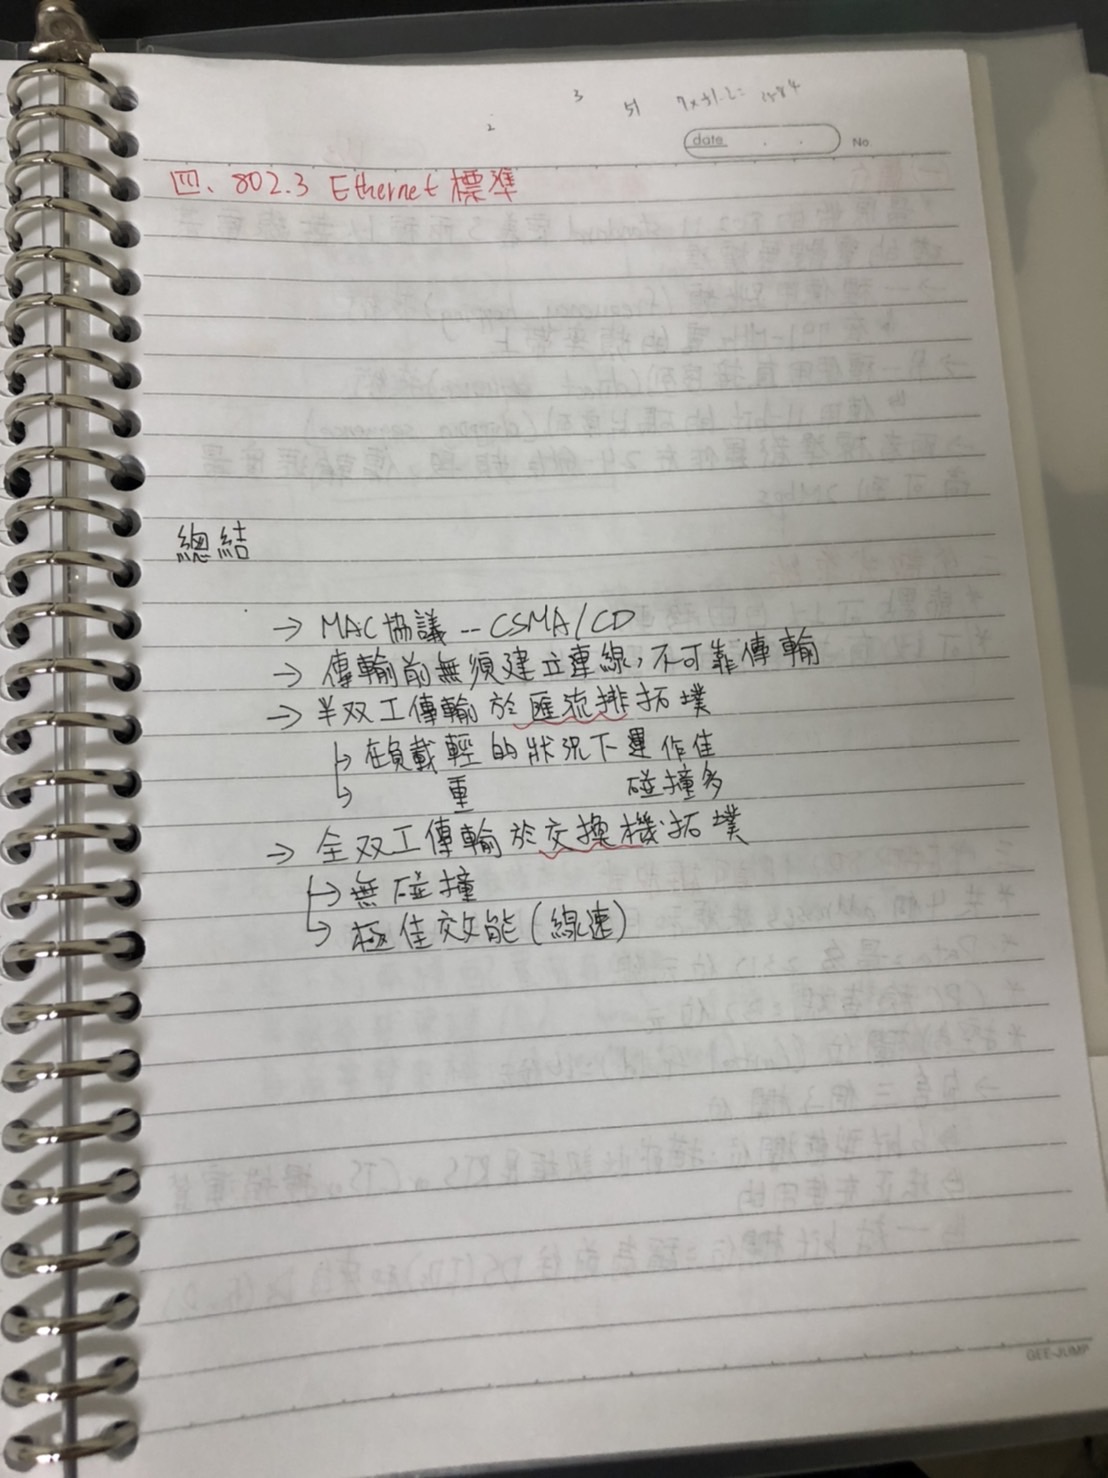 3
51
2
date
No
四、802.3 Ethernet 標準
總結
→ MAC協議 -- CSMA/CD
→ 傳輸前無須建立連線,不可靠傳輸
→ 半双工傳輸於匯流排拓墣
↳ 在負載輕的狀況下運作佳
↳ 重 碰撞多
→ 全双工傳輸於交換機拓墣
↳ 無碰撞
↳ 極佳效能(線速)
GEE-JUMP